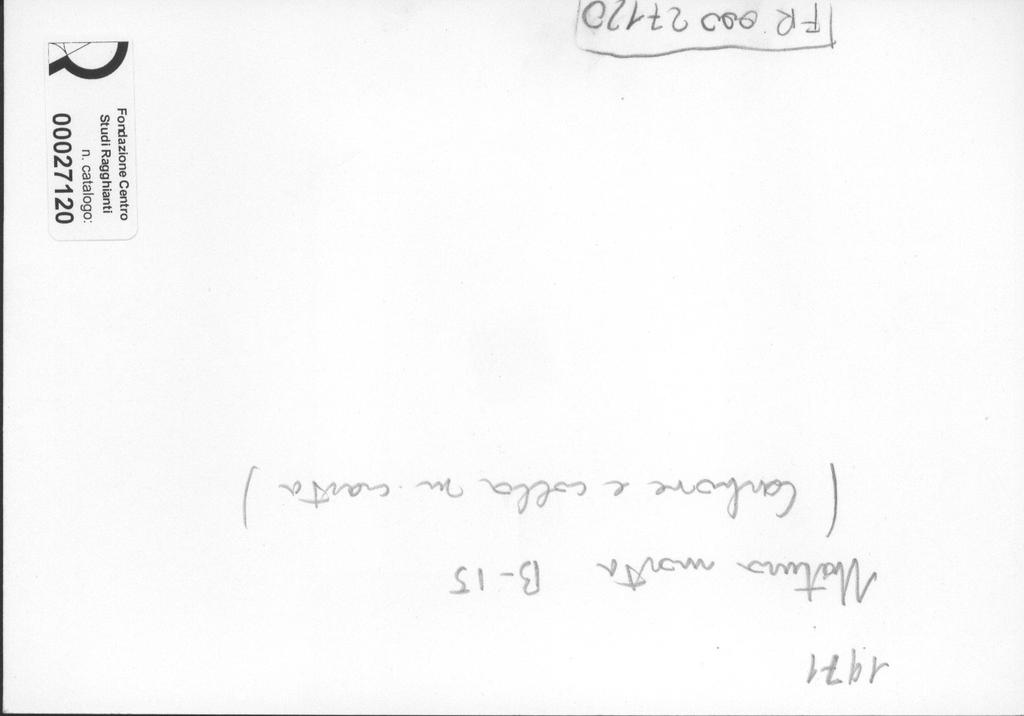 1971
Natura morta B-15
(Carbone e colla su carta)
FR 000 27120
Fondazione Centro
Studi Ragghianti
n. catalogo:
00027120